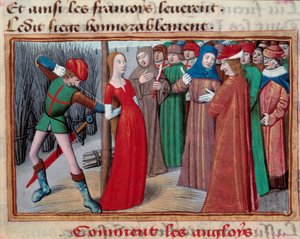 Et ainsi les francoys leverent
Ledit siege honnorablement.
Comment les angloys